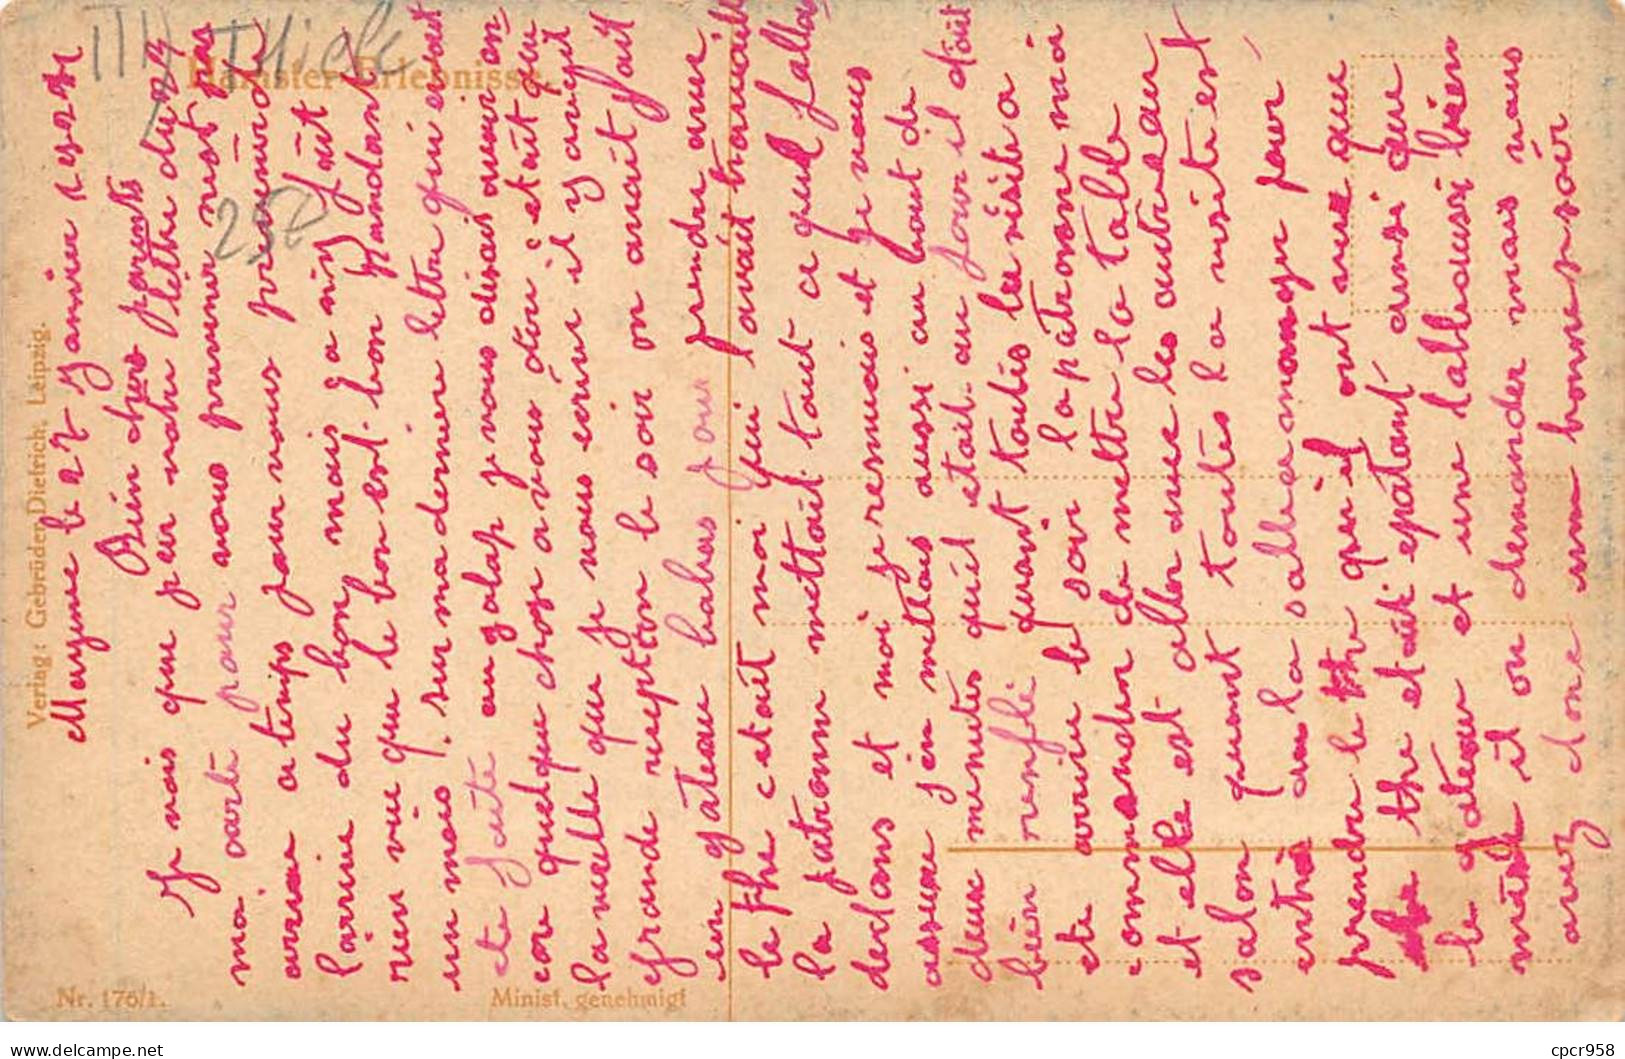 Hamster-Erlebnisse.
Thiele
25 F
Verlag: Gebrüder Dietrich, Leipzig.
Nr. 176/1.
Minist. genehmigt
Mayence le 27 Janvier 1921
Bien chers parents
Je vois que par votre lettre du 24
ma carte pour vous prevenir n'est pas
arrivee a temps pour vous prevenir de
l'arrivee du bon mais ça n'y fait
rien vue que le bon est bon pendant
un mois, sur ma derniere letre qui avait
ete faite au galop je vous disais avoir en
cor quelque chose a vous dire c etait que
la veille que je vous ecrive il y avait
grande reception le soir on avait fait
un gateau
le the c etait moi qui l'avait travaille
la patronne mettait tout ce qu'il fallait
dedans et moi je remuais et je vous
assure j'en mettais aussi au bout de
deux minutes qu'il etait au four il etait
bien renflé quant toute la visite a
ete arrivee le soir la patronne m'a
commander de mettre la table
et elle est aller avec les autre au
salon quant toute la visite est
entré dans la salle a manger pour
prendre le the qu'il ont vue que
le the etait epatant ainsi que
le gateau et une table aussi bien
mise il on demander mais vous
avez donc une bonne ce soir